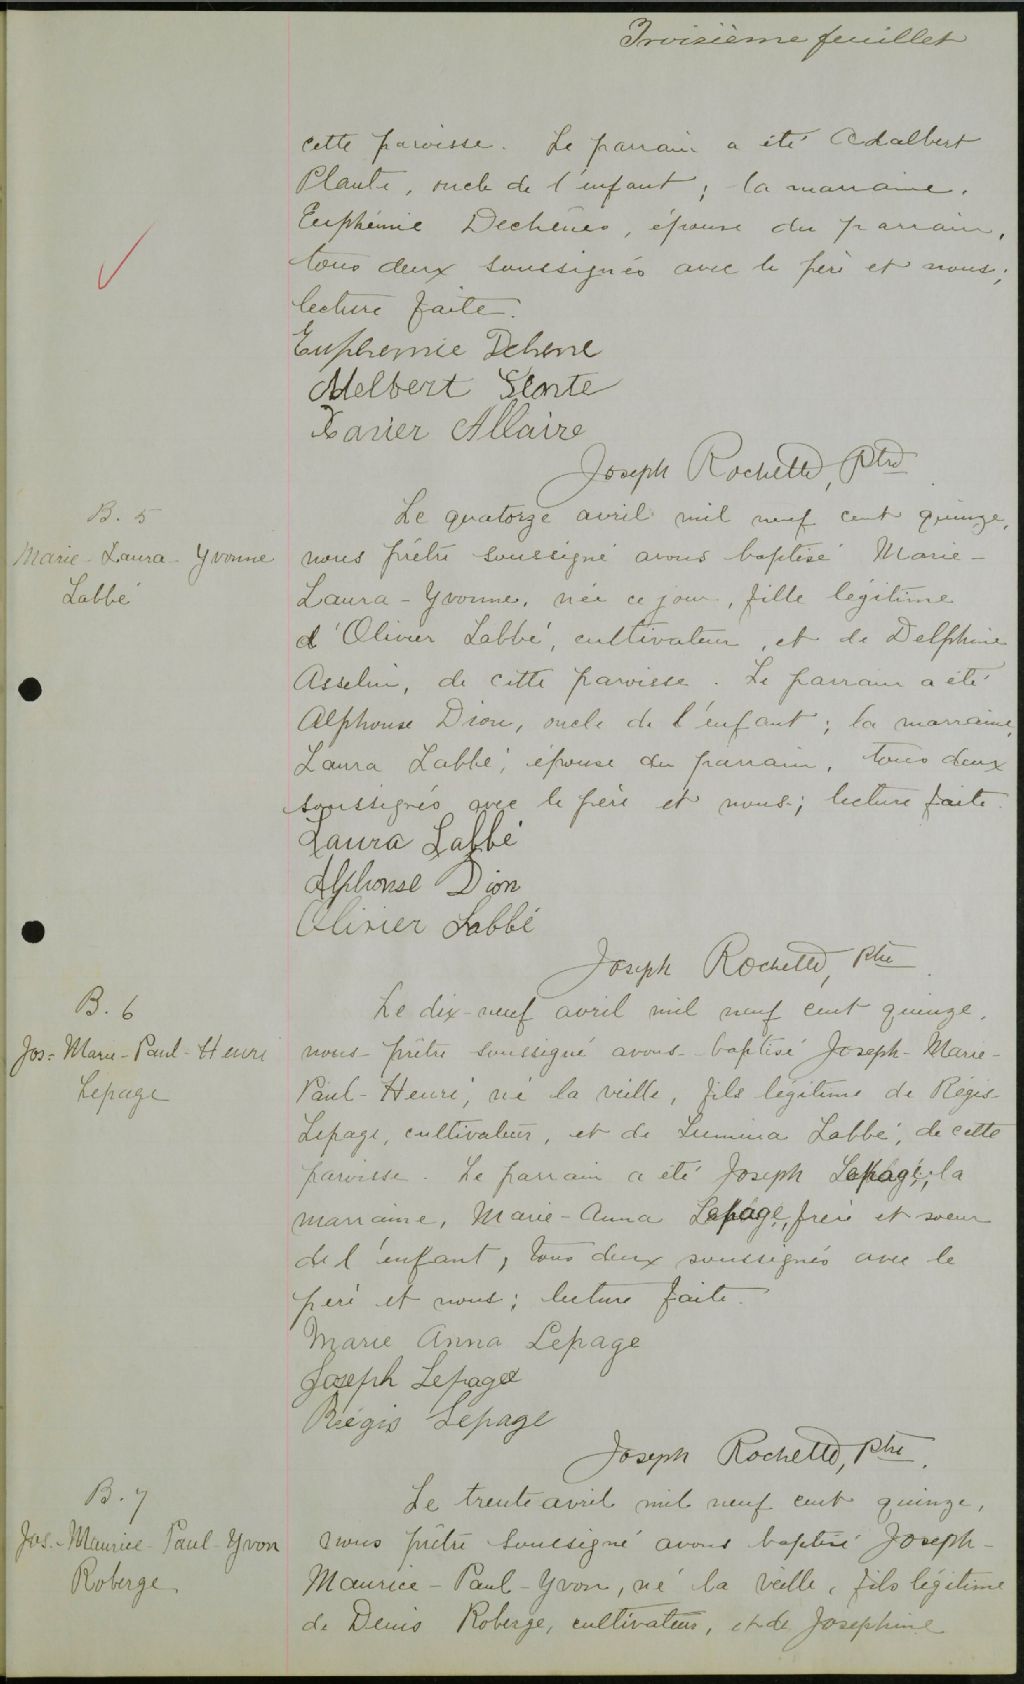 Troisième feuillet
cette paroisse. Le parrain a été Adalbert
Plante, oncle de l'enfant; la marraine,
Euphémie Dechênes, épouse du parrain,
tous deux soussignés avec le père et nous;
lecture faite.
Euphemie Dchene
Adelbert Plante
Xavier Allaire
Joseph Rochette, Ptre
B. 5
Marie-Laura-Yvonne
Labbé
Le quatorze avril mil neuf cent quinze,
nous prêtre soussigné avons baptisé Marie-
Laura-Yvonne, née ce jour, fille légitime
d'Olivier Labbé, cultivateur, et de Delphine
Asselin, de cette paroisse. Le parrain a été
Alphonse Dion, oncle de l'enfant; la marraine,
Laura Labbé, épouse du parrain, tous deux
soussignés avec le père et nous; lecture faite.
Laura Labbé
Alphonse Dion
Olivier Labbé
Joseph Rochette, Ptre
B. 6
Jos-Marie-Paul-Henri
Lepage
Le dix-neuf avril mil neuf cent quinze,
nous prêtre soussigné avons baptisé Joseph-Marie-
Paul-Henri, né la veille, fils légitime de Régis
Lepage, cultivateur, et de Lumina Labbé, de cette
paroisse. Le parrain a été Joseph Lepage; la
marraine, Marie-Anna Lepage, frère et soeur
de l'enfant, tous deux soussignés avec le
père et nous; lecture faite.
Marie Anna Lepage
Joseph Lepage
Régis Lepage
Joseph Rochette, Ptre.
B. 7
Jos.-Maurice-Paul-Yvon
Roberge
Le trente avril mil neuf cent quinze,
nous prêtre soussigné avons baptisé Joseph-
Maurice-Paul-Yvon, né la veille, fils légitime
de Denis Roberge, cultivateur, et de Joséphine